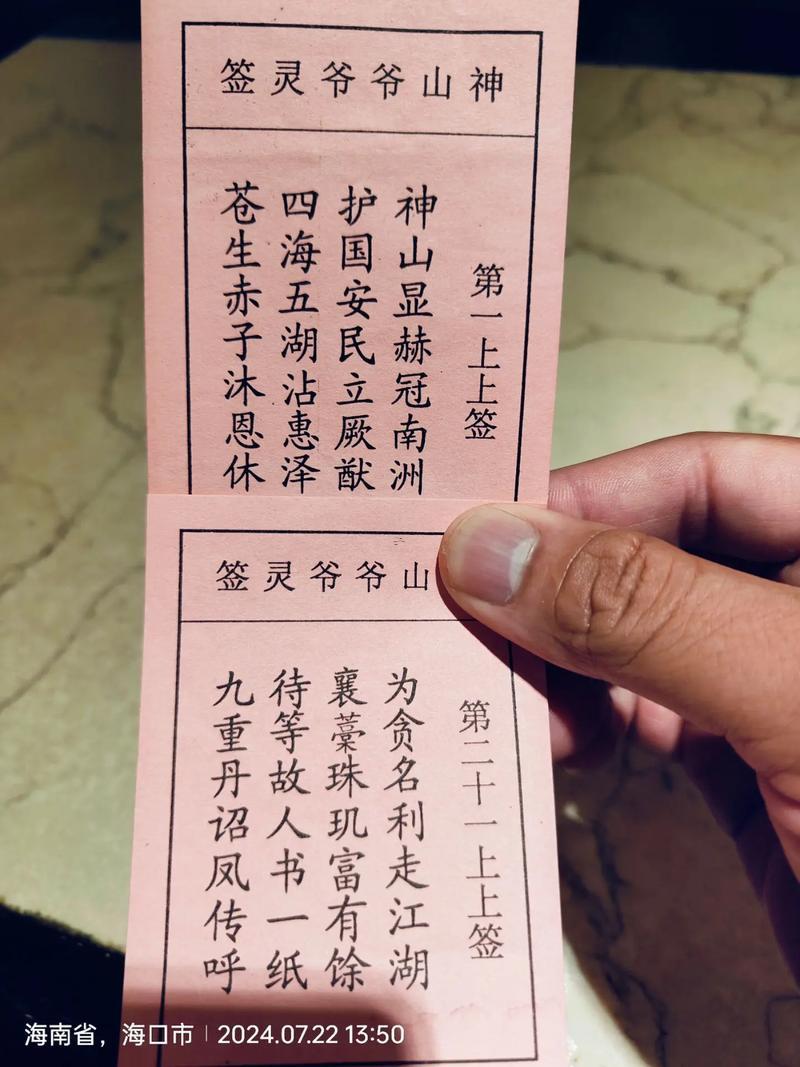 神山爷爷灵签
第一上上签
神山显赫冠南洲
护国安民立厥猷
四海五湖沾惠泽
苍生赤子沐恩休
山爷爷灵签
第二十一上上签
为贪名利走江湖
襄藁珠玑富有馀
待等故人书一纸
九重丹诏凤传呼
海南省，海口市 | 2024.07.22 13:50